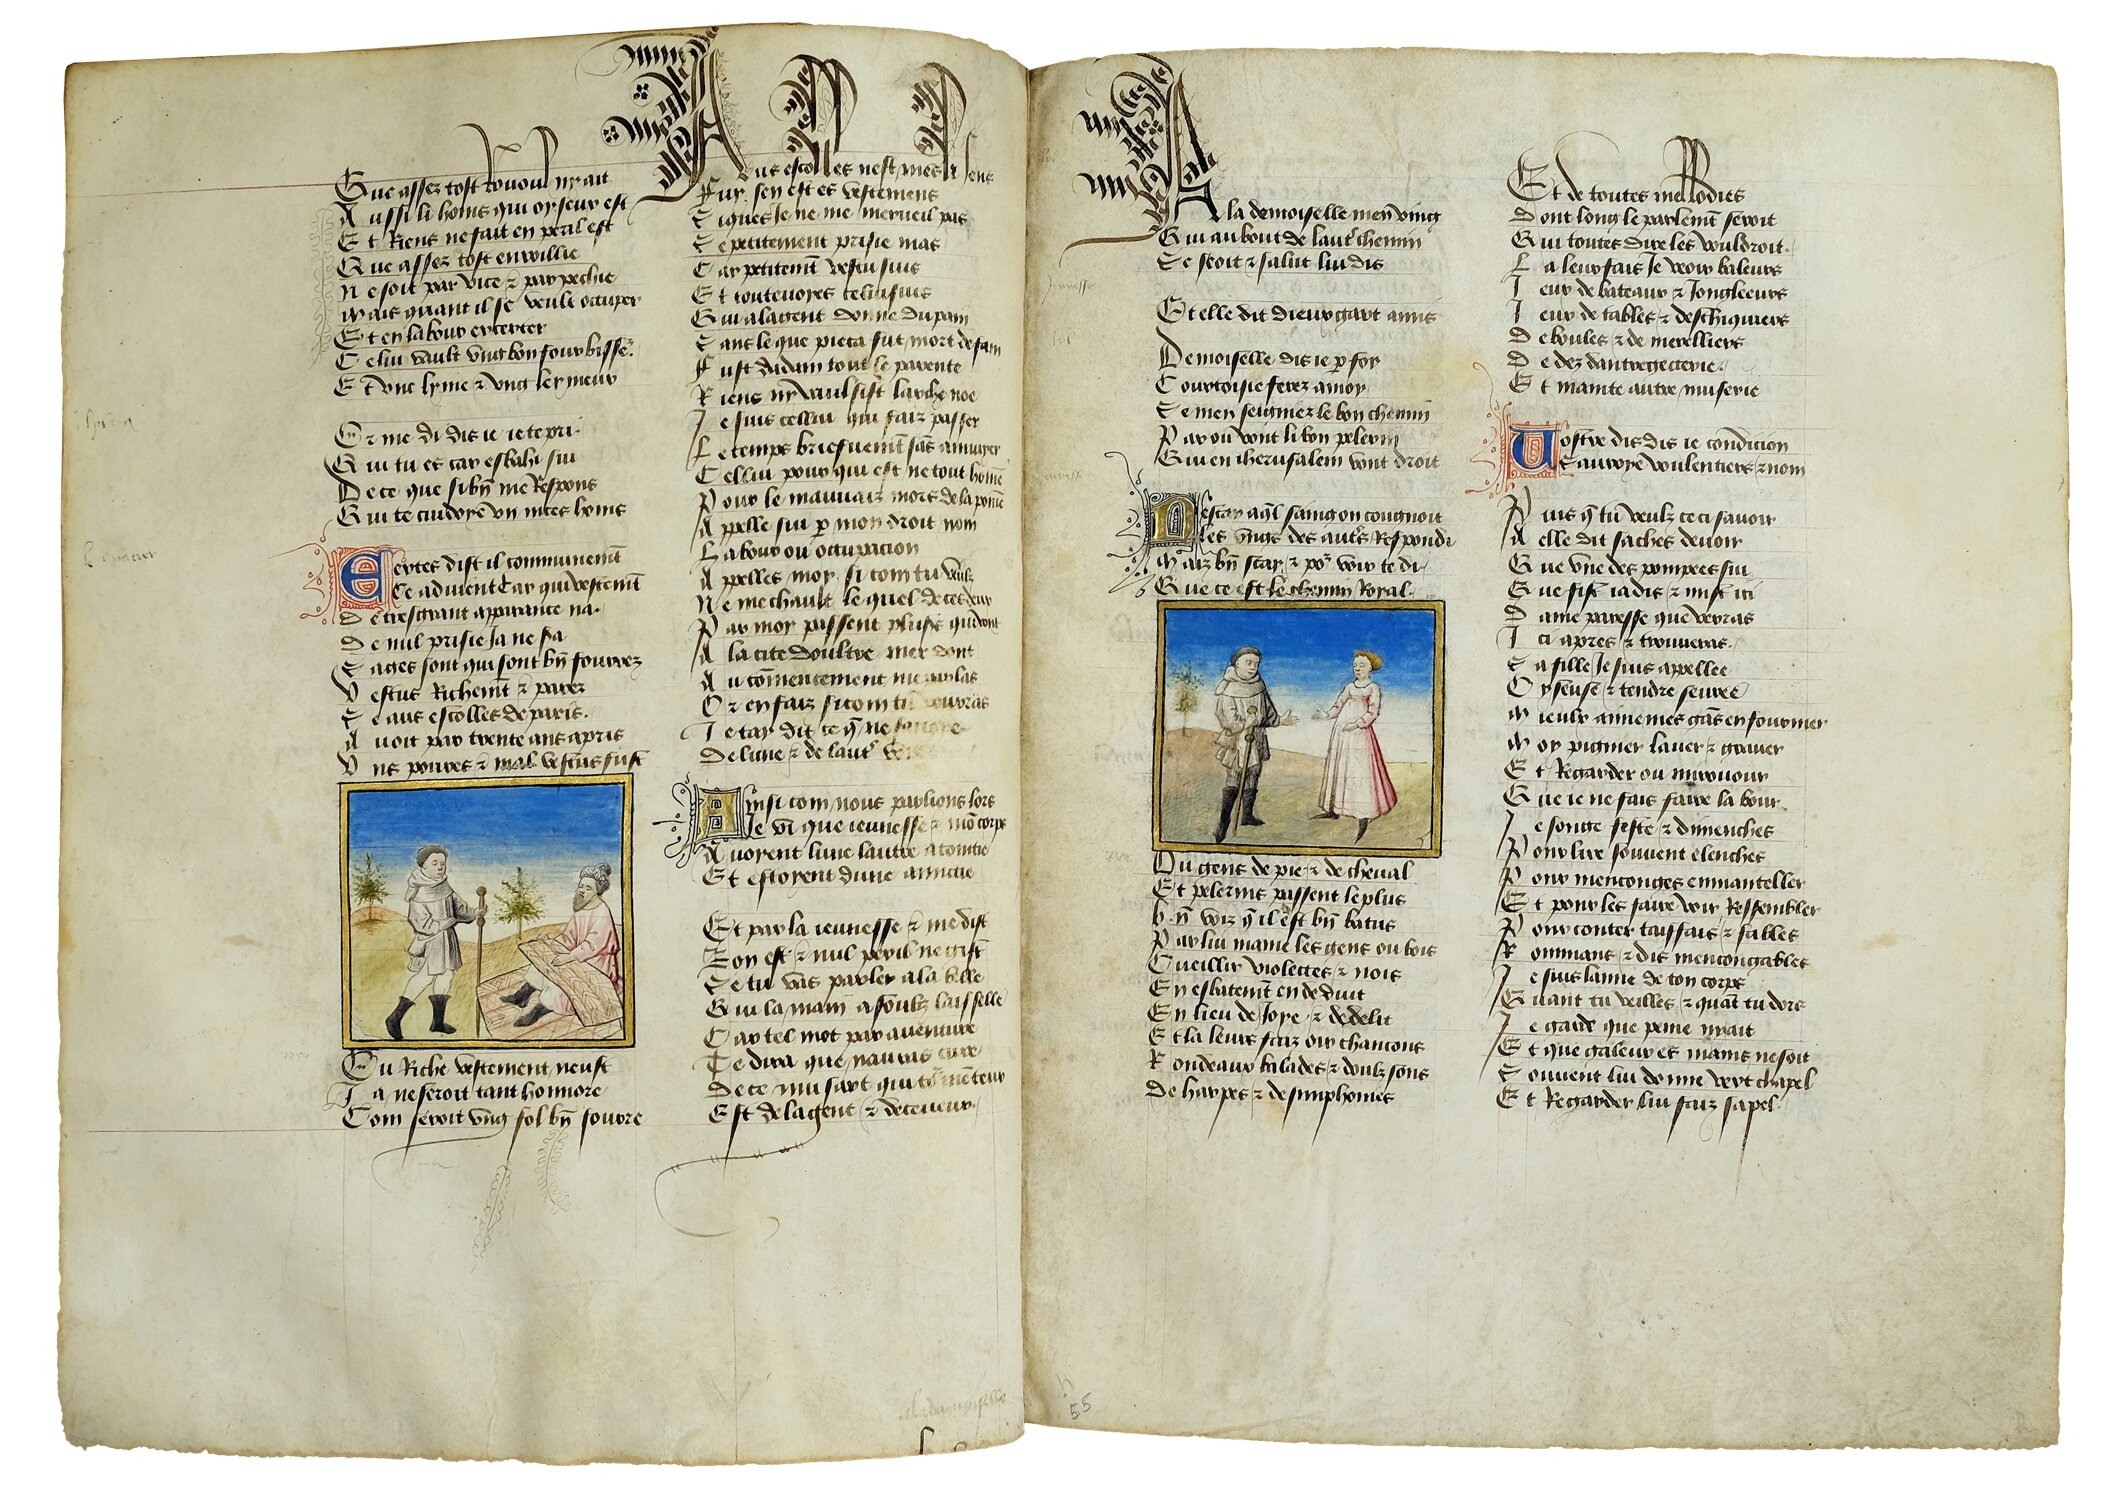 Que assez tost rououl ny ait
Aussi li homs qui oyseux est
Et Riens ne fait en peril est
Que assez tost enroullie
Ne soit par vice & par pechie
Mais quant il se veult occuper
Et en labour exerter
Celui vault vng bon fourbisse.
Et donc lyme & vng lymeur
Or me di dis ie ie te pri
Qui tu es car esbahi sui
De ce que si bn me Respons
Qui te cuidoye vn nices homs
Certes dist il communemt
Ce aduient Car qui vestemt
De tresgrant apparance na
De nul prisie Ja ne sa
Sages sont qui sont bn fourrez
Vestus Richemt & parez
Se aus escolles de paris.
Auoit par trente ans apris
Vns poures & mal vestus fust
Ou Riche vestement neust
Ja ne seroit tant honnore
Com seroit vng fol bn fourre
Aus escolles nest mes le sens
Fuy sen est es vestemens
Si ques Je ne me merueil pas
Se petitement prisie mas
Car petitemt vestu suis
Et toutenoyes celui suis
Qui a la gent donne du pain
Sans le que pieca fut mort de fain
Fust dadam tout le parente
Riens ny vaulsist larche noe
Je suis cellui qui faiz passer
Le temps briefuemt sãs annuyer
Cellui pour qui est ne tout home
Pour le mauuaiz mors de la pome
Appelle sui p mon droit nom
Labour ou occupacion
Appelles moy si com tu veulz
Ne me chault le quel de ces deux
Par moy passent plusrs qui vont
A la cite doultre mer dont
Au comencement me parlas
Or en faiz si com tu vourras
Je tay dit ce q ne
De lune & de lautr
Ainsi com nous parlions lors
Je vi que ieunesse & mõ corps
Auoyent lune lautre acointie
Et estoyent dune amictie
Et par la ieunesse & me dist
Bon est & nul peril ne gist
Se tu vas parler a la belle
Qui la main a soubz laisselle
Car tel mot par auenture
Te dira que nauras cure
De ce musart qui to menteur
Est de la gent & deceueur.
A la demoiselle men ving
Qui au bout de lautr chemin
Se seoit & salut lui dis
Et elle dit dieux gart amis
Demoiselle dis ie p foy
Courtoisie ferez a moy
Se men seigniez le bon chemin
Par ou vont li bon pelerin
Qui en iherusalem vont droit
Ne scay aql saing on cougnoit
Les vngs des autrs Respondi
Maiz bn scay & por voir te di.
Que ce est le chemin Royal.
Ou gens de pie & de cheual
Et pelerins passent le plus
Bn voiz q il est bn batus
Par lui maine les gens ou bois
Cueillir violettes & nois
En esbatemt en deduit
En lieu de Joye & de delit
Et la leurs faiz oir chancons
Rondeaux balades & doulz sons
De harpes & de simphonies
Et de toutes mellodies
Dont long le parlemt seroit
Qui toutes dire les vouldroit.
La leur fais Je veoir baleurs
Jeux de bateaux & Jongleeurs
Jeux de tables & deschiquiers
De boules & de merelliers
De dez dantregecterie.
Et mainte autre muserie
Vostre dis dis ie condicion
Sauroye voulentiers & nom
Puis q tu veulz ceci sauoir
A elle dit saches de uoir
Que vne des pompees sui
Que fist iadis & mist ici
Dame paresse que verras
Ici apres & trouueras.
Sa fille Je suis appellee
Oyseuse & tendre seuree
Mieulx aime mes gãs en fourmer
Moy pigner lauer & grauer
Et Regarder ou mirouour
Que ie ne fais faire labour.
Je songe feste & dimenches
Pour lire souuent elenches
Pour menconges enmanteller
Et pour les faire voir Ressembler
Pour conter taissais & fables
Rommans & dis mencongables
Je suis lamie de ton corps
Quant tu veilles & quãt tu dors
Je garde que peine nyait
Et que galeur es mains ne soit
Souuent lui donne vert chapel
Et Regarder lui faiz sa pel.
55